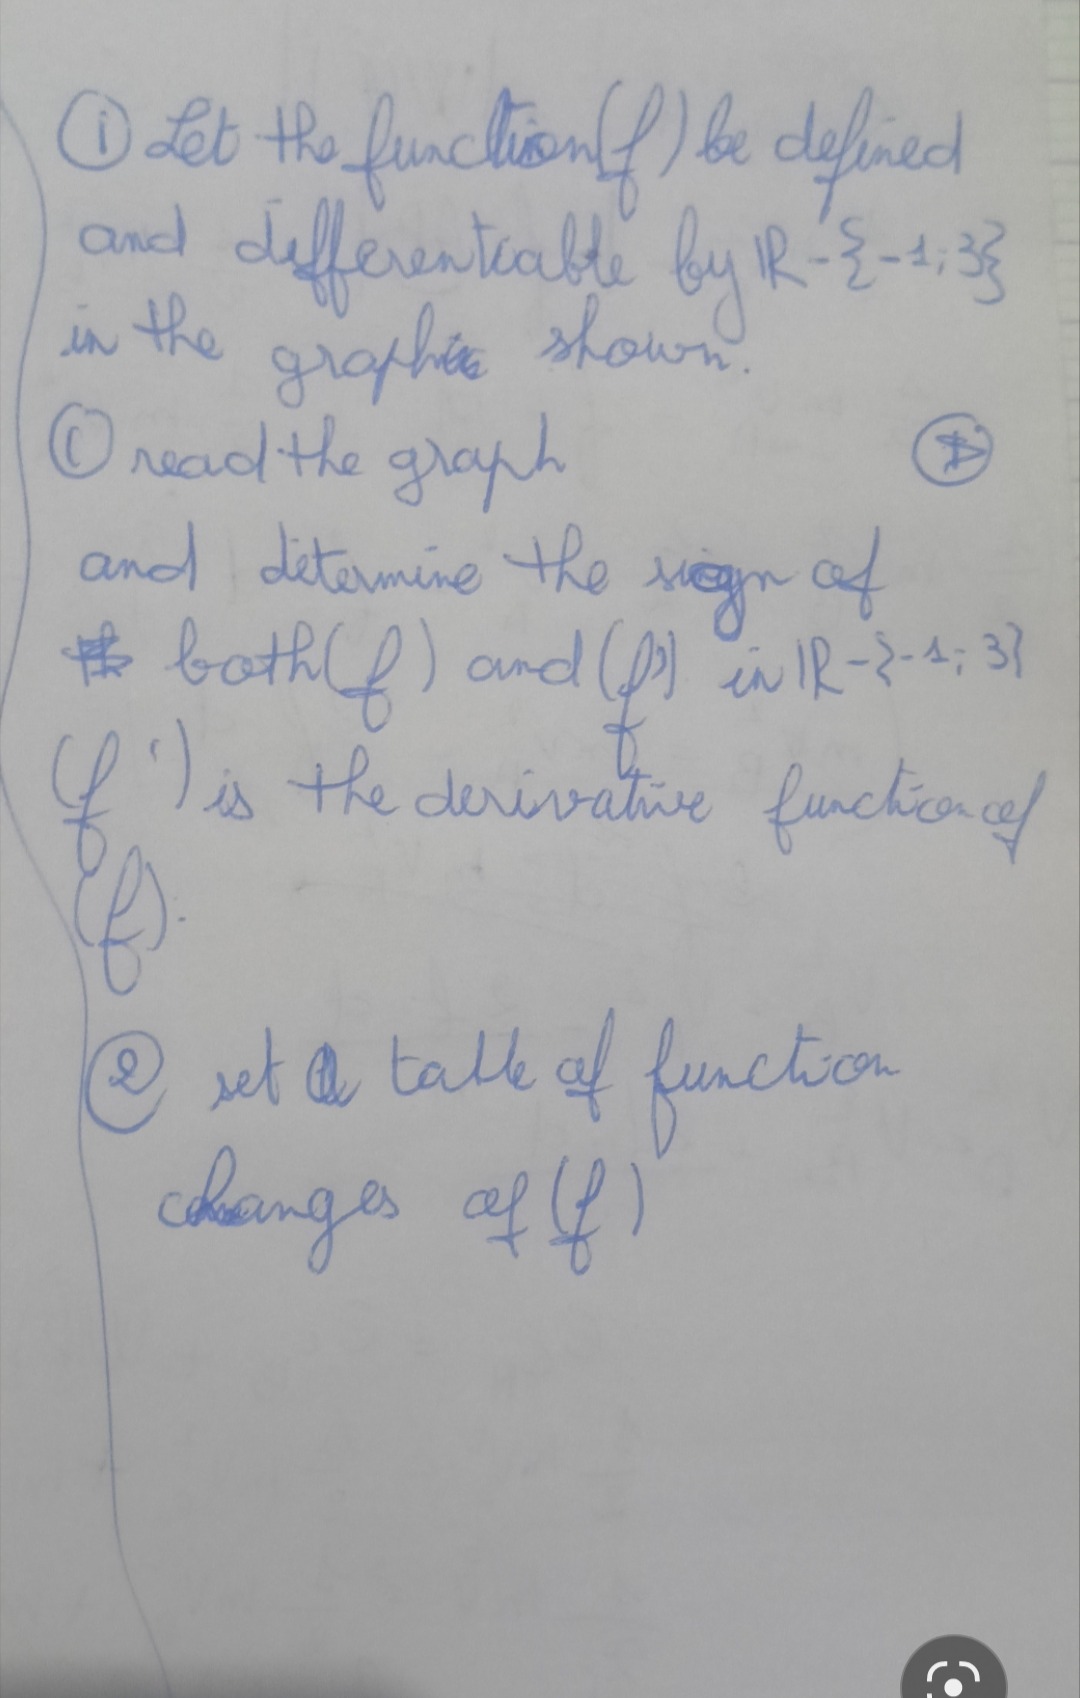 ① Let the function (f) be defined
and differentiable by IR-{-1;3}
in the graph shown.
① read the graph
and ditermine the sign of
both (f) and (f') in IR-{-1;3}
(f') is the derivative function of
(f).
② set a table of function
changes of (f)